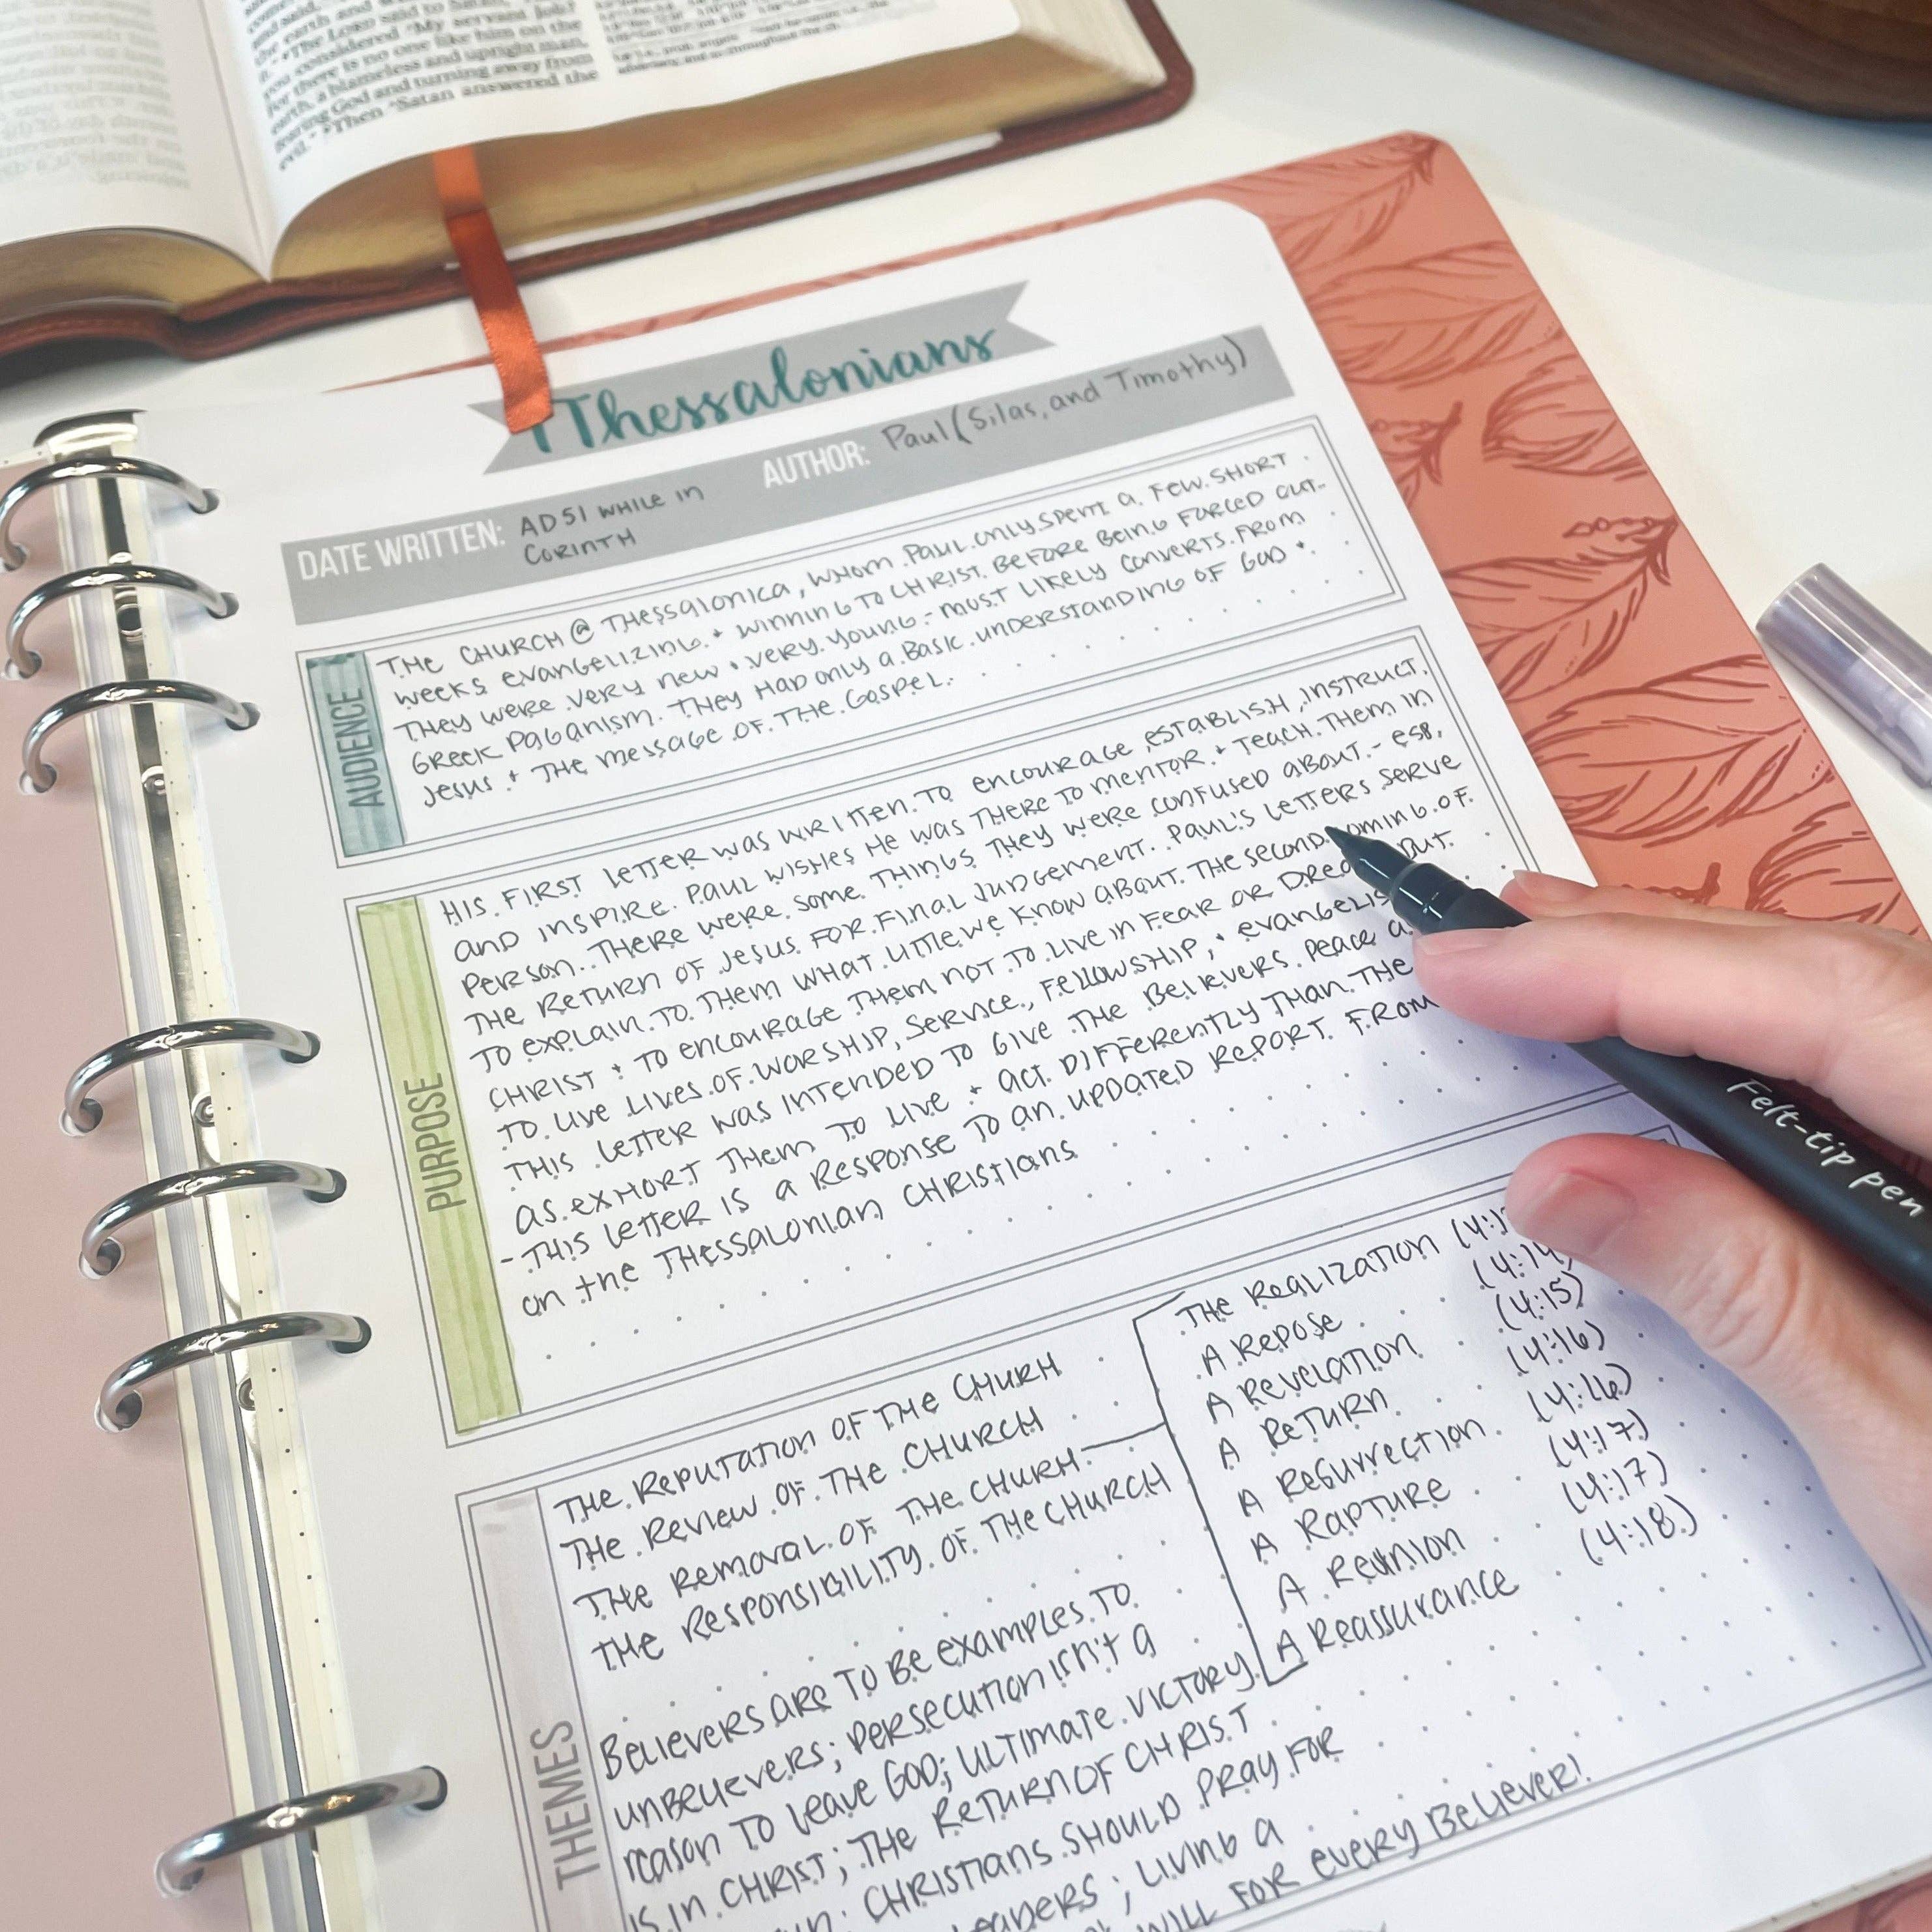 the earth and
said to Satan,
"The LORD said to Satan, "My servant Job?
you considered
For there is no one like him on the
earth, a blameless and upright man,
fearing God and turning away from
evil." Then Satan answered the
1 Thessalonians
DATE WRITTEN: AD 51 WHILE IN
CORINTH
AUTHOR: Paul (Silas, and Timothy)
AUDIENCE
THE CHURCH @ THESSALONICA, WHOM PAUL ONLY SPENT A FEW SHORT
WEEKS EVANGELIZING + WINNING TO CHRIST BEFORE BEING FORCED OUT.
THEY WERE VERY NEW + VERY YOUNG - MOST LIKELY CONVERTS FROM
GREEK PAGANISM. THEY HAD ONLY A BASIC UNDERSTANDING OF GOD +
JESUS + THE MESSAGE OF THE GOSPEL.
PURPOSE
HIS FIRST LETTER WAS WRITTEN TO ENCOURAGE, ESTABLISH, INSTRUCT,
AND INSPIRE. PAUL WISHES HE WAS THERE TO MENTOR + TEACH THEM IN
PERSON. THERE WERE SOME THINGS THEY WERE CONFUSED ABOUT - ESP.
THE RETURN OF JESUS FOR FINAL JUDGEMENT. PAUL'S LETTERS SERVE
TO EXPLAIN TO THEM WHAT LITTLE WE KNOW ABOUT THE SECOND COMING OF
CHRIST + TO ENCOURAGE THEM NOT TO LIVE IN FEAR OR DREAD BUT
TO LIVE LIVES OF WORSHIP, SERVICE, FELLOWSHIP, + EVANGELIS
THIS LETTER WAS INTENDED TO GIVE THE BELIEVERS PEACE A
AS EXHORT THEM TO LIVE + ACT DIFFERENTLY THAN THE
- THIS LETTER IS A RESPONSE TO AN UPDATED REPORT FROM
ON THE THESSALONIAN CHRISTIANS
THEMES
THE REPUTATION OF THE CHURH
THE REVIEW OF THE CHURCH
THE REMOVAL OF THE CHURH
THE RESPONSIBILITY OF THE CHURCH
THE REALIZATION (4:1
A REPOSE (4:14)
A REVELATION (4:15)
A RETURN (4:16)
A RESURRECTION (4:16)
A RAPTURE (4:17)
A REUNION (4:17)
A REASSURANCE (4:18)
BELIEVERS ARE TO BE EXAMPLES TO
UNBELIEVERS; PERSECUTION ISN'T A
REASON TO LEAVE GOD; ULTIMATE VICTORY
IS IN CHRIST; THE RETURN OF CHRIST
CHRISTIANS SHOULD PRAY FOR
LEADERS; LIVING A
WILL FOR EVERY BELIEVER!
Felt-tip pen